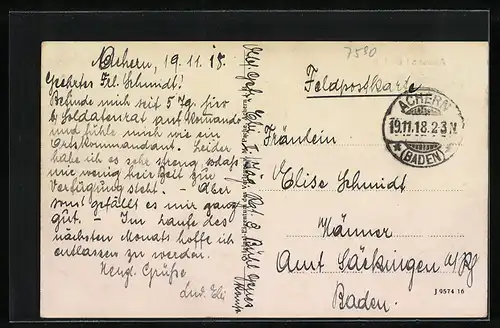 Achern, 19.11.18.
Geehrtes Frl. Schmidt!
Befinde mich seit 5 Tg. hier
b. Soldatenrat auf Kommando
und fühle mich wie ein
Ortskommandant. Leider
habe ich es sehr streng, sodaß
mir wenig freie Zeit zur
Verfügung steht. — Aber
sonst gefällt es mir ganz
gut. Im Laufe des
nächsten Monats hoffe ich
entlassen zu werden.
Grüße
7580
Feldpostkarte
ACHERN
19.11.18.2-3N
(BADEN)
Fräulein
Elise Schmidt
Männer
Amt Säckingen a/Rh
Baden.
J 9574 16